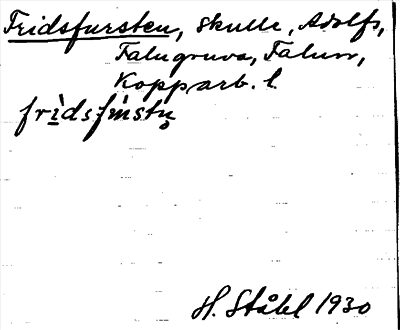 Fridsfursten, skulle, Adolfs,
Falugruva, Falun,
Kopparb. l.
H. Ståhl 1930